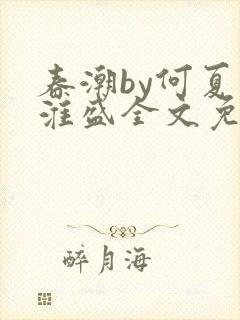 春潮by何夏
淮盛全文免
醉月海